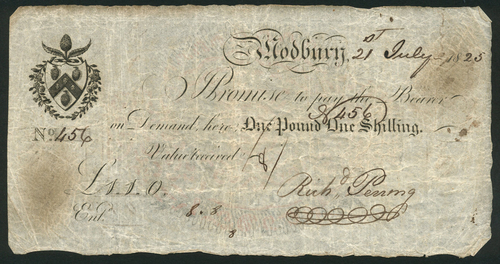 Modbury, 21st July 1825
I Promise to pay the Bearer
No 456
No 456 on Demand, here, One Pound One Shilling.
Value received
£1.1.0. Richd Penny
Ent.